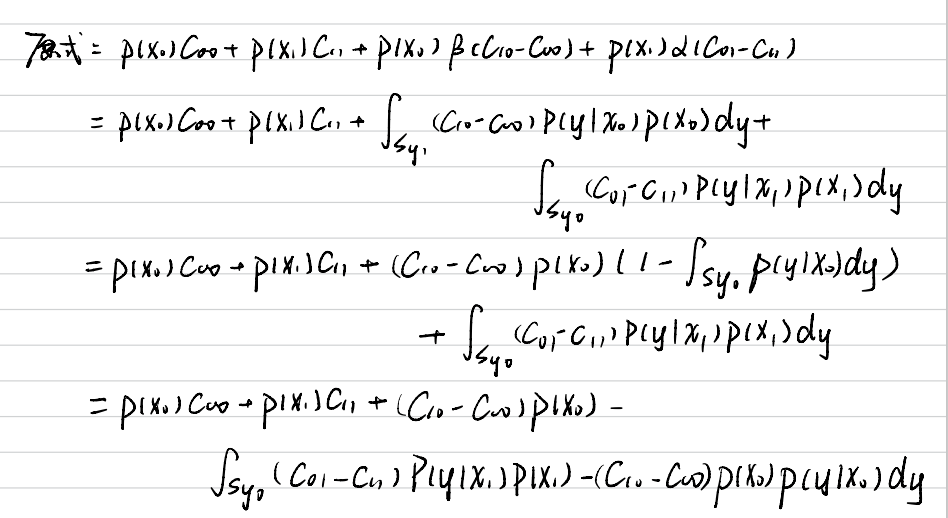 原式 = p(x₀)C₀₀ + p(x₁)C₁₁ + p(x₀)β(C₁₀-C₀₀) + p(x₁)α(C₀₁-C₁₁)
= p(x₀)C₀₀ + p(x₁)C₁₁ + ∫_{Sy₁} (C₁₀-C₀₀) P(y|x₀)p(x₀)dy +
∫_{Sy₀} (C₀₁-C₁₁) P(y|x₁)p(x₁)dy
= p(x₀)C₀₀ + p(x₁)C₁₁ + (C₁₀-C₀₀)p(x₀)(1-∫_{Sy₀} p(y|x₀)dy)
+ ∫_{Sy₀} (C₀₁-C₁₁) P(y|x₁)p(x₁)dy
= p(x₀)C₀₀ + p(x₁)C₁₁ + (C₁₀-C₀₀)p(x₀) -
∫_{Sy₀} (C₀₁-C₁₁) P(y|x₁)p(x₁) - (C₁₀-C₀₀)p(x₀)p(y|x₀)dy